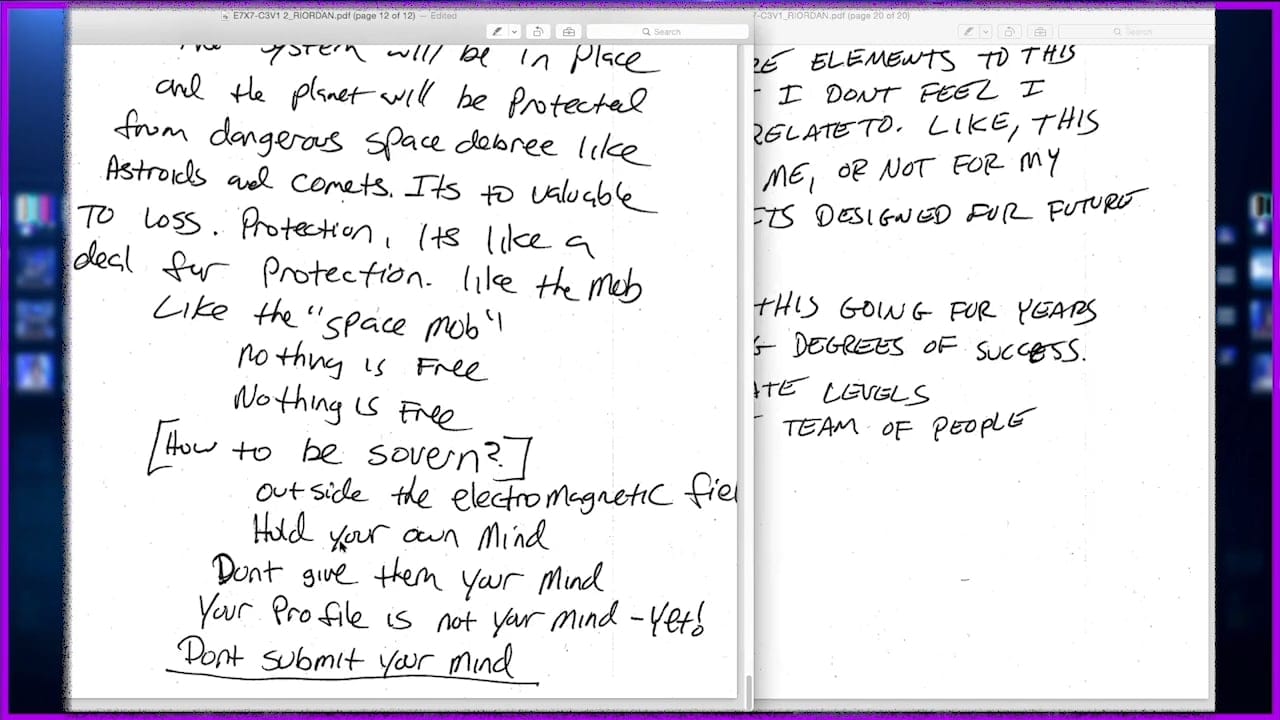 E7X7-C3V1 2_RIORDAN.pdf (page 12 of 12) — Edited
Search
The system will be in place
and the planet will be protected
from dangerous space debree like
Astroids and comets. Its to valuable
TO LOSS. Protection, Its like a
deal for protection. like the mob
Like the "space mob"!
Nothing is Free
Nothing is Free
[How to be sovern?]
outside the electromagnetic fiel
Hold your own mind
Dont give them your mind
Your Profile is not your mind - Yet!
Dont submit your mind
-C3V1_RIORDAN.pdf (page 20 of 20)
Search
RE ELEMENTS TO THIS
I DONT FEEL I
RELATE TO. LIKE, THIS
ME, OR NOT FOR MY
ITS DESIGNED FOR FUTURE
THIS GOING FOR YEARS
G DEGREES OF SUCCESS.
ATE LEVELS
TEAM OF PEOPLE